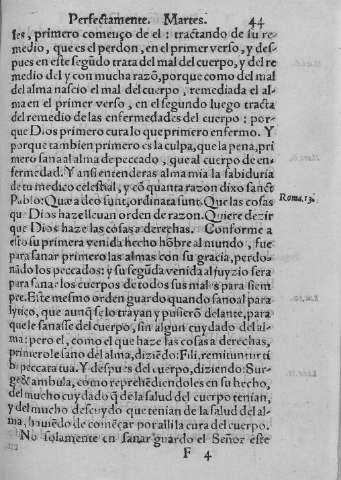 Perfectamente. Martes. 44
les, primero començo de el : tractando de su re
medio, que es el perdon, en el primer verso, y des
pues en este segūdo trata del mal del cuerpo, y del re
medio del y con mucha razō, porque como del mal
del alma nascio el mal del cuerpo, remediada el al-
ma en el primer verso, en el segundo luego tracta
del remedio de las enfermedades del cuerpo : por-
que Dios primero cura lo que primero enfermo. Y
porque tambien primero es la culpa, que la pena, pri
mero sana al alma de peccado, que al cuerpo de en-
fermedad. Y ansi entenderas alma mia la sabiduria
de tu medico celestial, y cō quanta razon dixo sanct
Pablo: Quæ a deo sunt, ordinata sunt. Que las cosas
Roma. 13.
qu Dios haze lleuan orden de razon. Quiere dezir
que Dios haze las cosas a derechas. Conforme a
esto su primera venida hecho hōbre al mundo, fue
para sanar primero las almas con su gracia, perdo-
nādo los peccados: y su segūda venida al juyzio sera
para sanar los cuerpos de todos sus males para siem
pre. Este mesmo orden guardo quando sano al para
lytico, que aunq̃ se lo trayan y pusierō delante, para
que le sanasse del cuerpo, sin algun cuydado del al-
ma: pero el, como el que haze las cosas a derechas,
primero le sano del alma, diziēdo: Fili, remittuntur ti
bi peccata tua. Y despues del cuerpo, diziendo: Sur-
ge & ambula, como reprehēdiendoles en su hecho,
del mucho cuydado q̃ de la salud del cuerpo tenian,
y del mucho descuydo que tenian de la salud del al-
ma, hauiēdo de comēçar por alli la cura del cuerpo.
No solamente en sanar guardo el Señor este
F 4